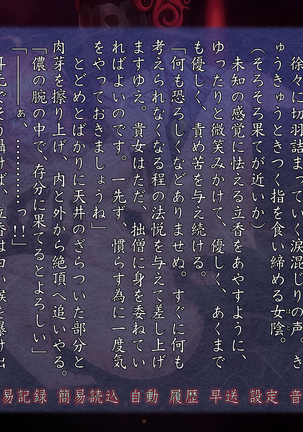 徐々に切羽詰まっていく涙混じりの声。き
ゅうきゅうときつく指を食い締める女陰。
(そろそろ果てが近いか)
未知の感覚に怯える立香をあやすように、
ゆったりと微笑みかけて、優しく、あくまで
も優しく、責め苦を与え続ける。
「何も恐ろしくなどありませぬ。すぐに何も
考えられなくなる程の法悦を与えて差し上げ
ますゆえ。貴女はただ、拙僧に身を委ねてい
ればよいのです。一先ず、慣らす為に一度気
をやっておきましょうね」
とどめとばかりに天井のざらついた部分と
肉芽を擦り上げ、内と外から絶頂へ追いやる。
「儂の腕の中で、存分に果てるとよろしい」
「――ぁ、………………っ!!」
易記録 簡易読込 自動 履歴 早送 設定 音